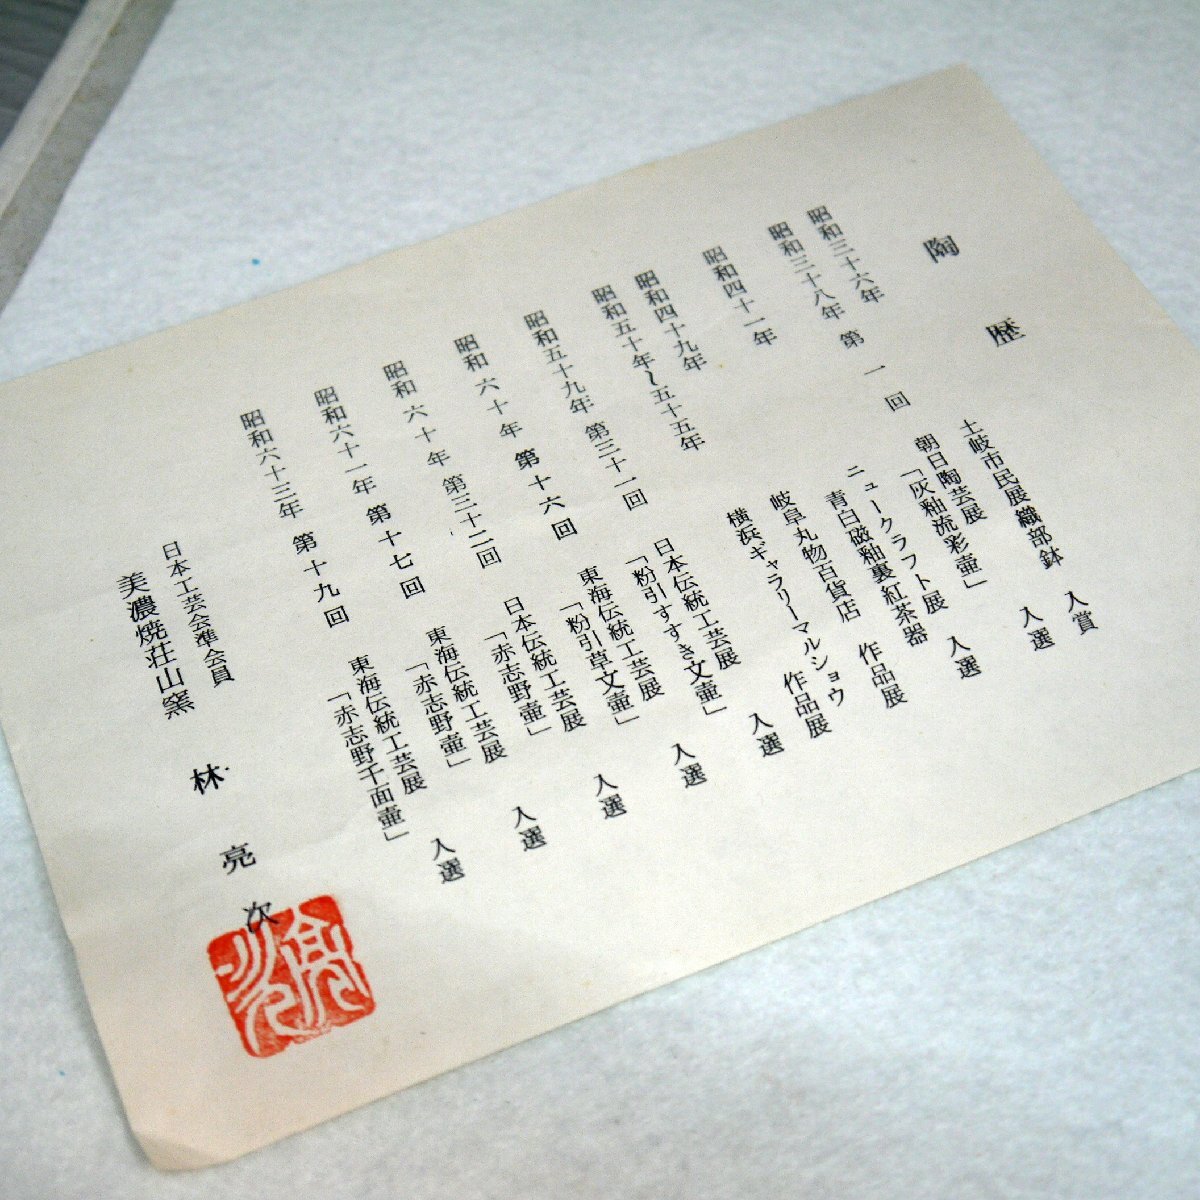 陶歴
昭和三十六年 土岐市民展織部鉢 入賞
昭和三十八年 第一回 朝日陶芸展
「灰釉流彩壷」 入選
昭和四十一年 ニュークラフト展
青白磁釉裏紅茶器 入選
昭和四十九年 岐阜丸物百貨店 作品展
昭和五十年~五十五年 横浜ギャラリーマルショウ 作品展
昭和五十九年 第三十一回 日本伝統工芸展
「粉引すすき文壷」 入選
昭和六十年 第十六回 東海伝統工芸展
「粉引草文壷」 入選
昭和六十年 第三十二回 日本伝統工芸展
「赤志野壷」 入選
昭和六十一年 第十七回 東海伝統工芸展
「赤志野壷」 入選
昭和六十三年 第十九回 東海伝統工芸展
「赤志野千面壷」 入選
日本工芸会準会員
美濃焼荘山窯 林亮次